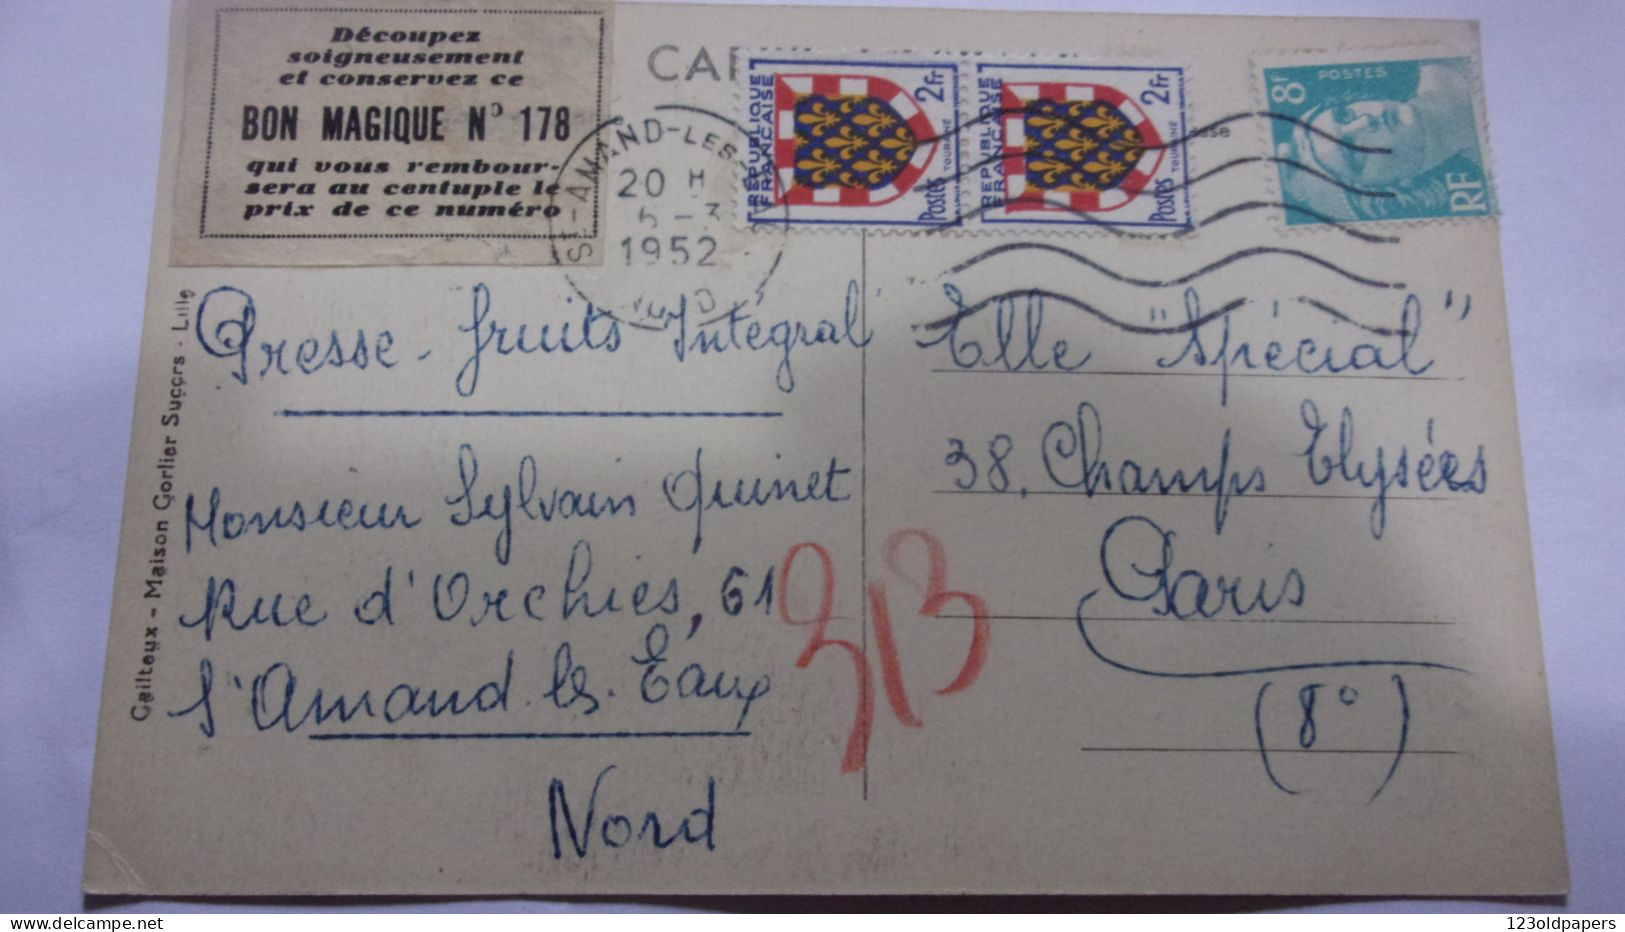 Découpez
soigneusement
et conservez ce
BON MAGIQUE Nº 178
qui vous rembour-
sera au centuple le
prix de ce numéro
CAR
ST-AMAND-LES
20 H
5 - 3
1952
NORD
REPUBLIQUE FRANÇAISE
2Fr
TOURAINE
Postes
REPUBLIQUE FRANÇAISE
2Fr
TOURAINE
Postes
8f
POSTES
RF
Presse-fruits Intégral
Monsieur Sylvain Quinet
Rue d'Orchies, 61
St Amand les Eaux
Nord
Elle "Spécial"
38, Champs Elysées
Paris
(8º)
313
Cailteux - Maison Gorlier Succrs - Lille
123oldpapers